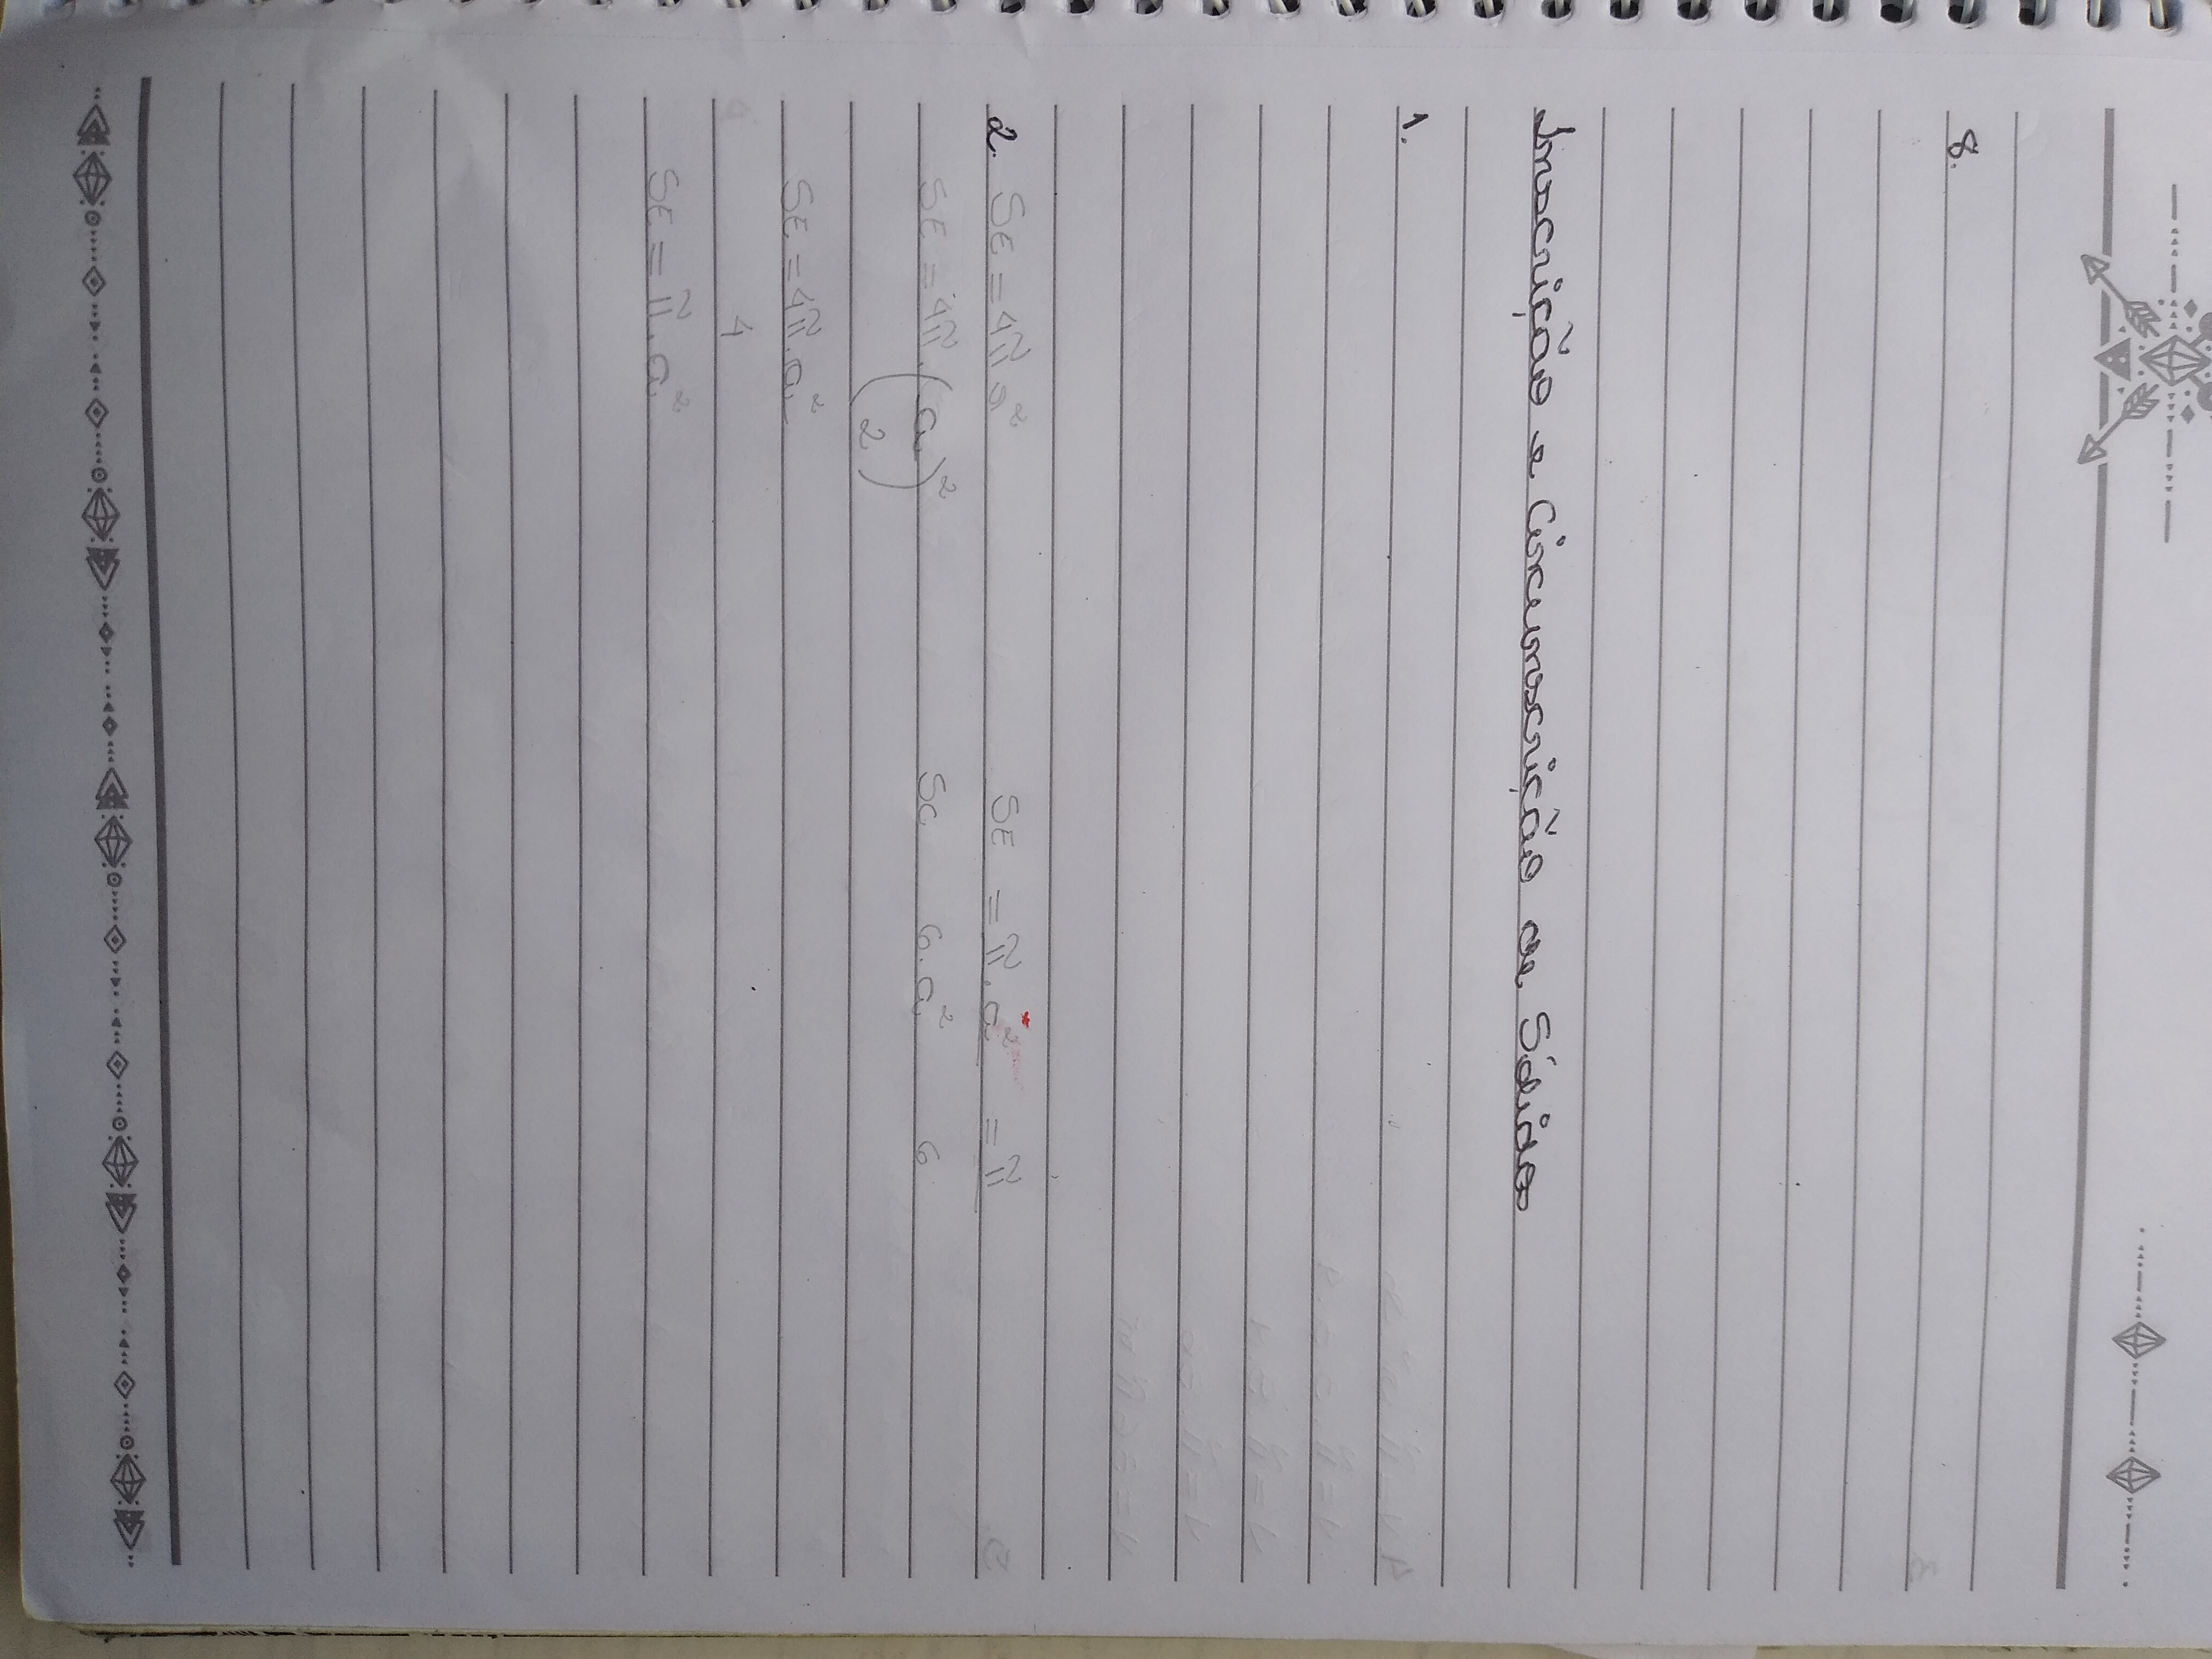 8.
Inscrição e Circunscrição de Sólidos
1.
2. SE = 4π r²
SE = 4π . (a/2)²
SE = 4π . a²
4
SE = π . a²
SE = π . a² = π
SC 6 . a² 6